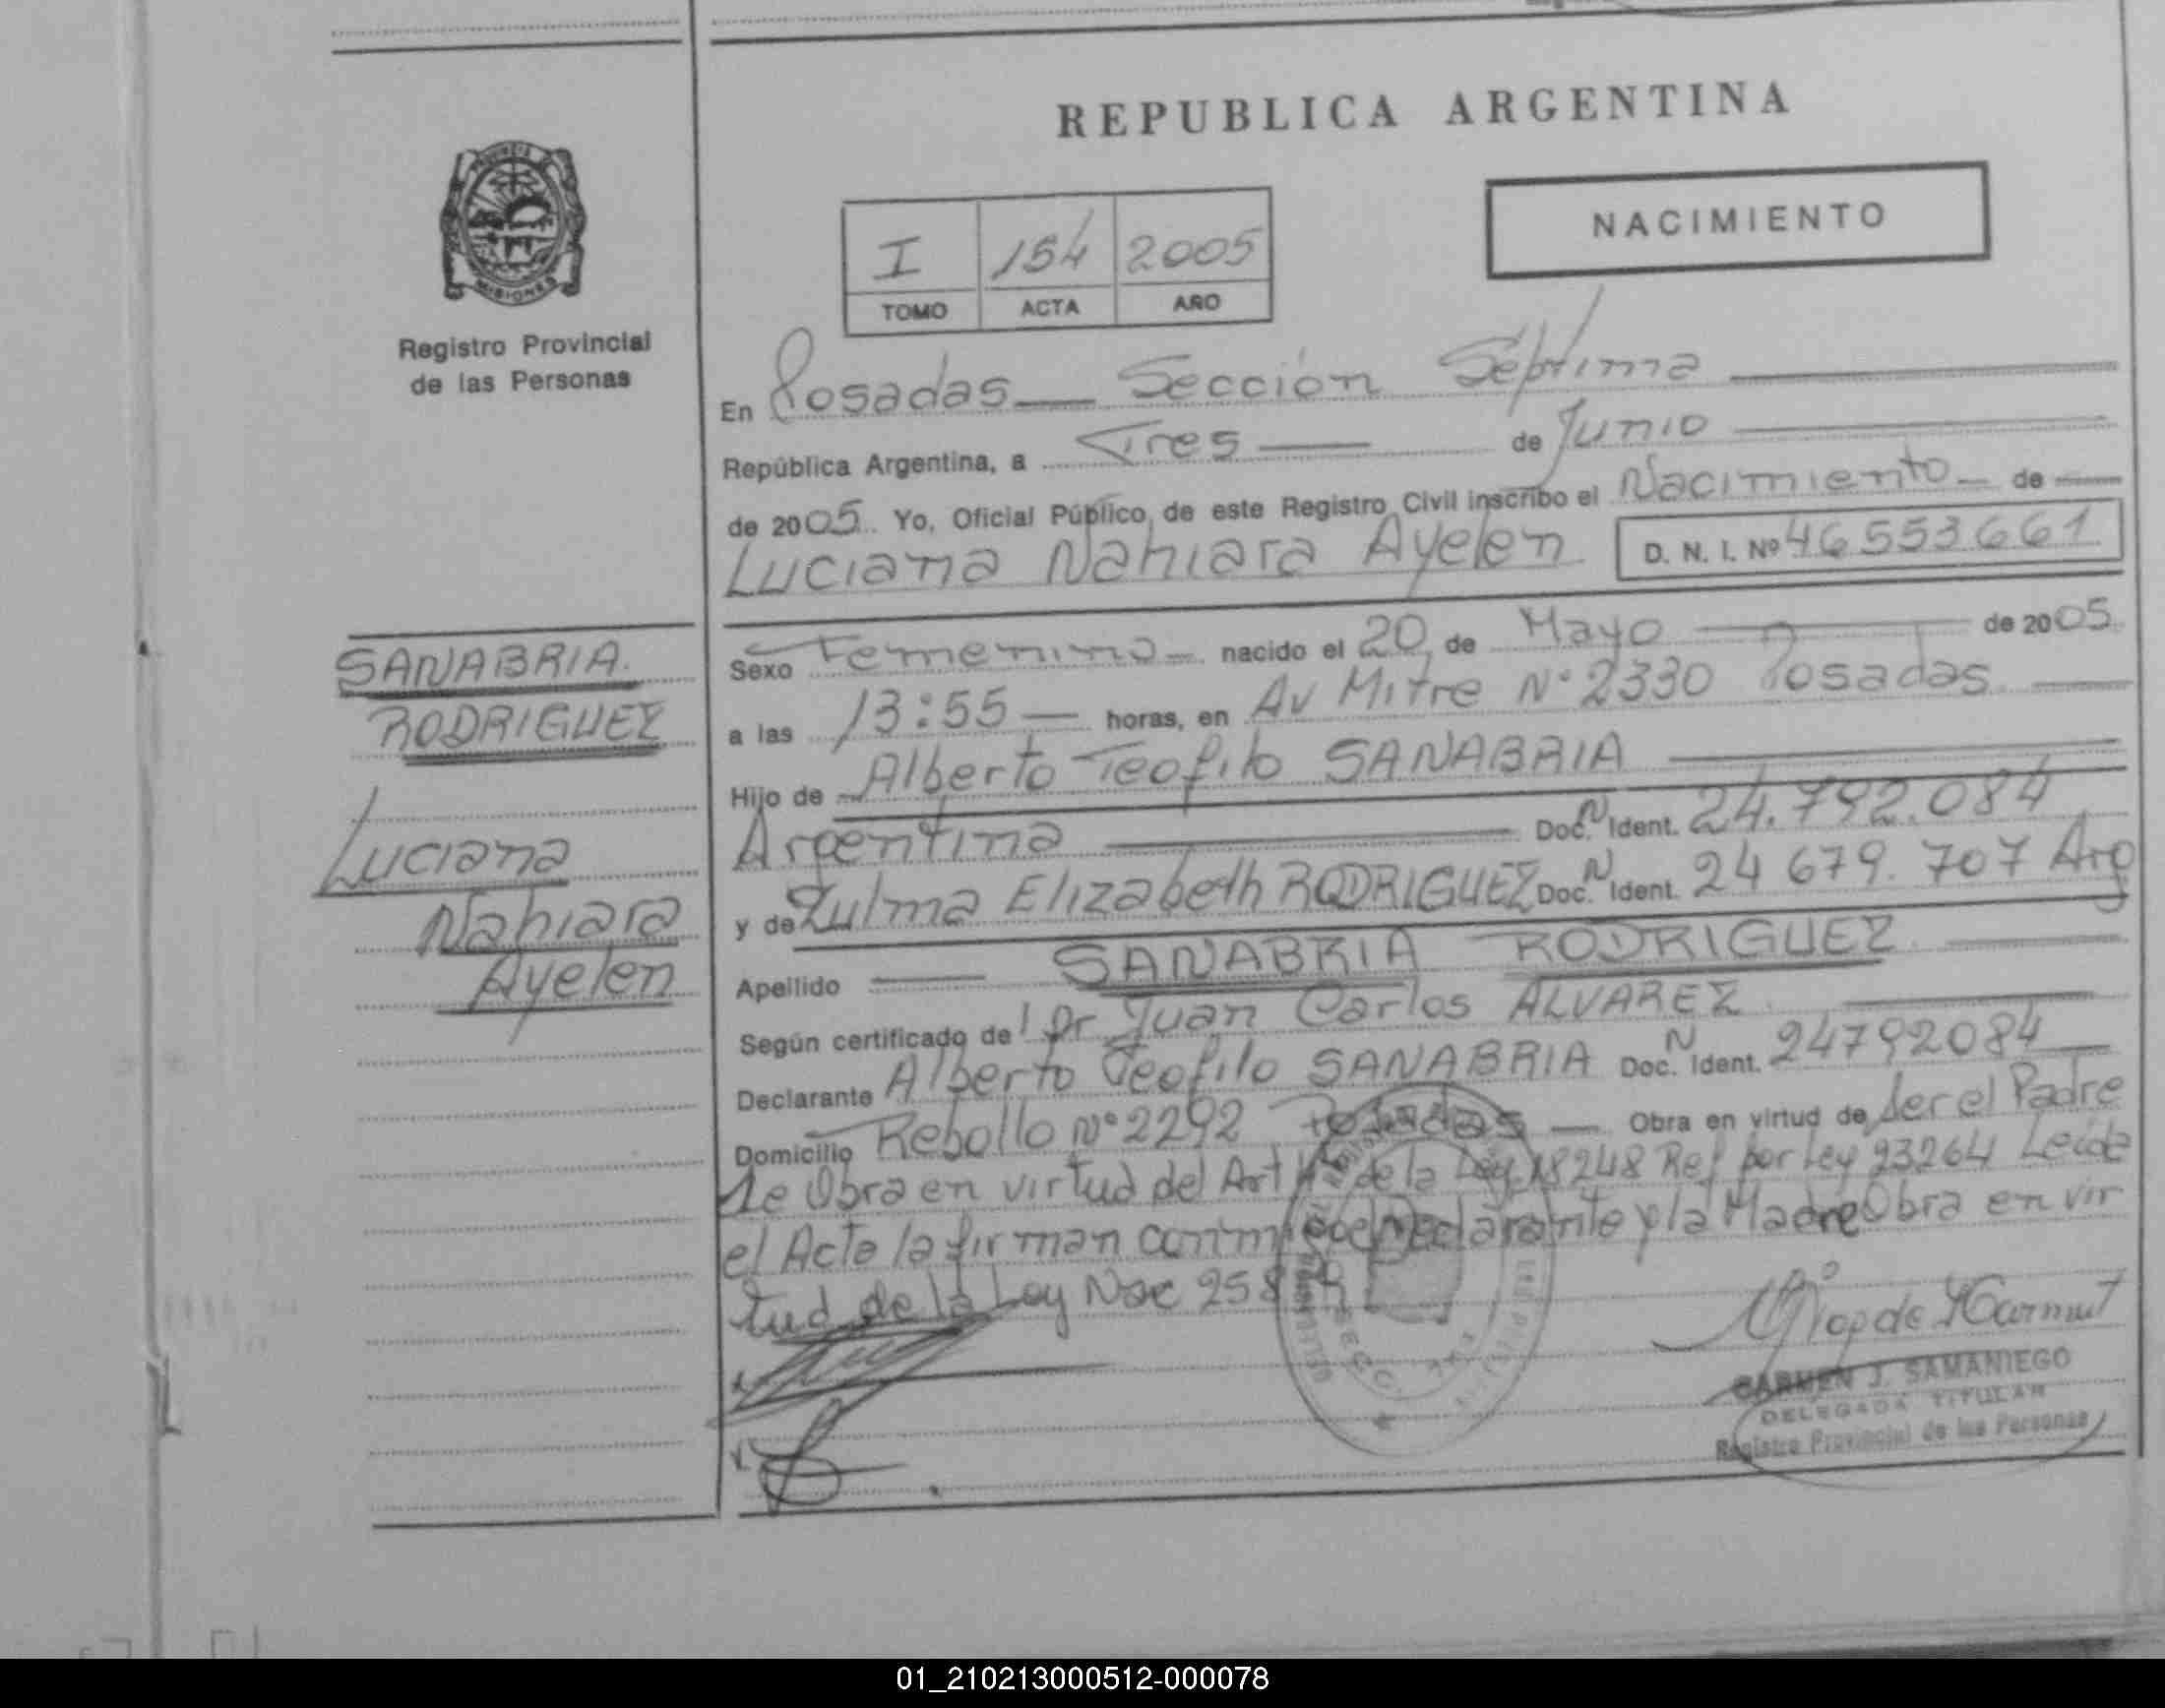 REPUBLICA ARGENTINA
NACIMIENTO
I 154 2005
TOMO ACTA AÑO
PROVINCIA DE
MISIONES
Registro Provincial
de las Personas
En Posadas — Sección Séptima
República Argentina, a Tres — de Junio
de 2005. Yo, Oficial Público, de este Registro Civil inscribo el Nacimiento — de
Luciana Nahiara Ayelen D. N. I. Nº 46553661
SANABRIA
RODRIGUEZ
Luciana
Nahiara
Ayelen
Sexo Femenino — nacido el 20 de Mayo — de 2005
a las 13:55 — horas, en Av Mitre Nº 2330 Posadas. —
Hijo de Alberto Teofilo SANABRIA
Argentina — Doc. N Ident. 24.792.084
y de Zulma Elizabeth RODRIGUEZ Doc. N Ident. 24 679. 707 Arg
Apellido — SANABRIA RODRIGUEZ
Según certificado de Dr Juan Carlos ALVAREZ
Declarante Alberto Teofilo SANABRIA Doc. N Ident. 24792084
Domicilio Rebollo Nº 2292 Posadas — Obra en virtud de Ser el Padre
Se Obra en virtud del Art de la Ley 18248 Ref por Ley 23264 Leida
el Acta la firman conmigo el Declarante y la Madre Obra en vir
tud de la Ley Nac
CARMEN J. SAMANIEGO
DELEGADA TITULAR
Registro Provincial de las Personas
01_210213000512-000078